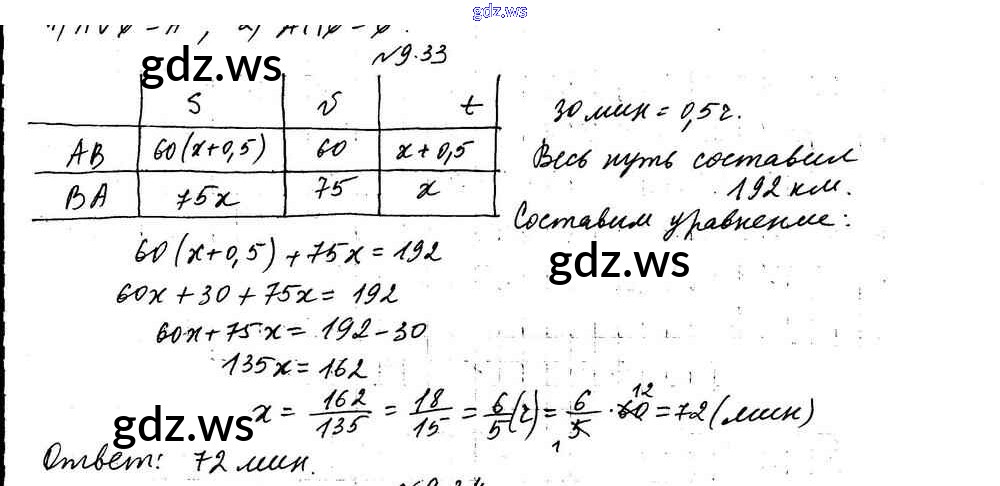 gdz.ws
№9.33
gdz.ws
S v t
AB 60(x+0,5) 60 x+0,5
BA 75x 75 x
30 мин = 0,5 ч.
Весь путь составил
192 км.
Составим уравнение:
60(x+0,5)+75x=192
gdz.ws
60x+30+75x=192
60x+75x=192-30
135x=162
x = 162/135 = 18/15 = 6/5 (ч) = 6/5 · 60 = 72 (мин)
12
1
gdz.ws
Ответ: 72 мин.